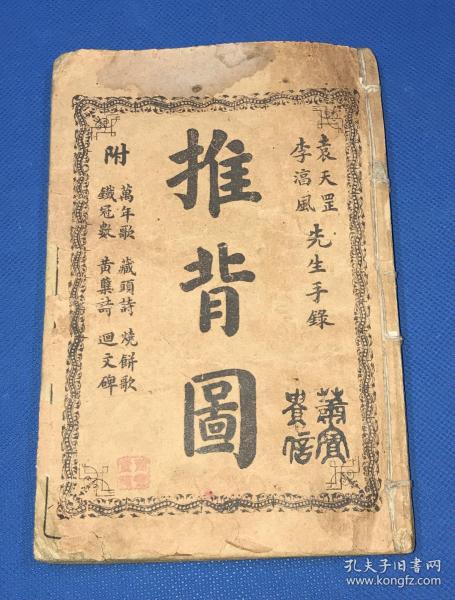 袁天罡
李淳風
先生手錄
推背圖
附
萬年歌 藏頭詩 燒餅歌
鐵冠數 黃蘗詩 迴文碑
孔夫子旧书网
www.kongfz.com